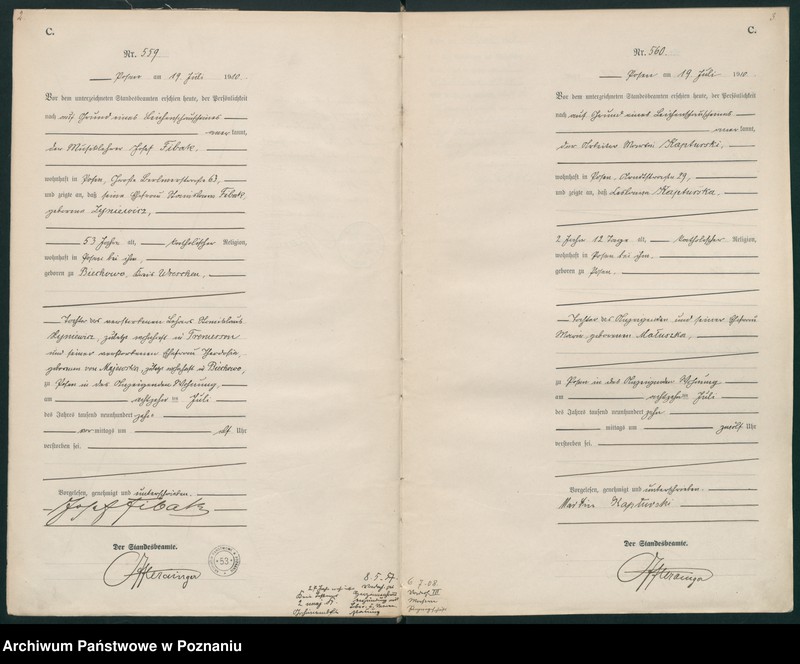 2
C.
Nr. 559
Posen am 19 Juli 1910.
Vor dem unterzeichneten Standesbeamten erschien heute, der Persönlichkeit
nach auf Grund eines Leichenschauscheines
kannt,
der Musiklehrer Josef Fibak,
wohnhaft in Posen, Große Berlinerstraße 63,
und zeigte an, daß seine Ehefrau Stanislawa Fibak,
geborene
53 Jahre alt, katholischer Religion,
wohnhaft in Posen bei ihm,
geboren zu Biechowo, Kreis Wreschen,
Tochter des verstorbenen Lehrers Stanislaus
zuletzt wohnhaft in
und seiner verstorbenen Ehefrau
geborenen von zuletzt wohnhaft in Biechowo,
zu Posen in des Anzeigenden Wohnung,
am achtzehnten Juli
des Jahres tausend neunhundert zehn
vormittags um elf Uhr
verstorben sei.
Vorgelesen, genehmigt und unterschrieben.
Josef Fibak
Der Standesbeamte.
53
8. 5. 57
3
C.
Nr. 560.
Posen am 19 Juli 1910.
Vor dem unterzeichneten Standesbeamten erschien heute, der Persönlichkeit
nach auf Grund eines Leichenschauscheines
kannt,
der Arbeiter Martin Kapturski,
wohnhaft in Posen, 29,
und zeigte an, daß Kapturska,
2 Jahre 12 Tage alt, katholischer Religion,
wohnhaft in Posen bei ihm,
geboren zu Posen,
Tochter des Anzeigenden und seiner Ehefrau
Maria, geborenen Matuszka,
zu Posen in des Anzeigenden Wohnung
am achtzehnten Juli
des Jahres tausend neunhundert zehn
mittags um zwölf Uhr
verstorben sei.
Vorgelesen, genehmigt und unterschrieben.
Martin Kapturski
Der Standesbeamte.
6 7.08.
Archiwum Państwowe w Poznaniu